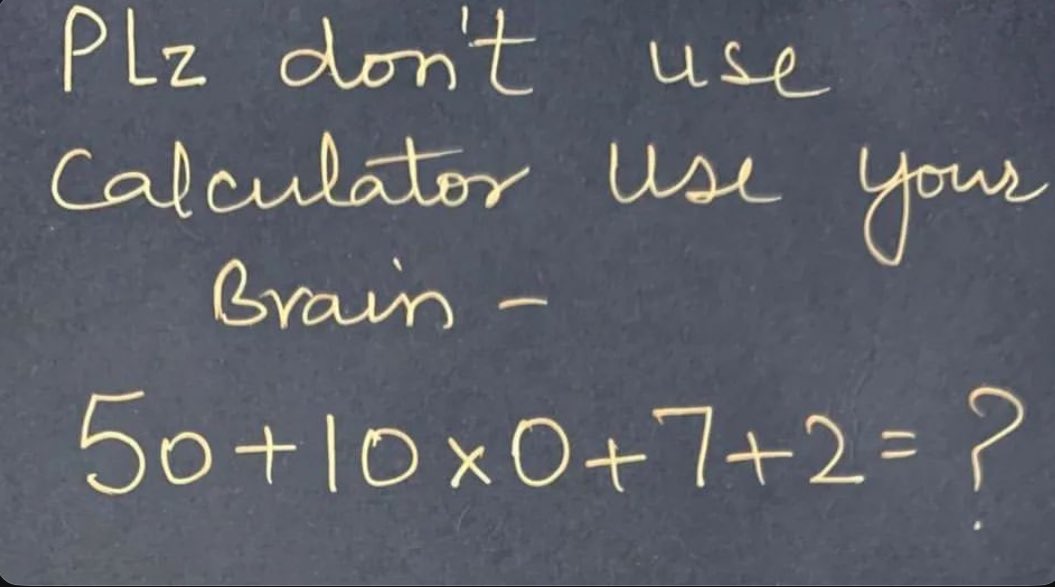 PLz don't use
Calculator Use your
Brain -
50+10×0+7+2=?